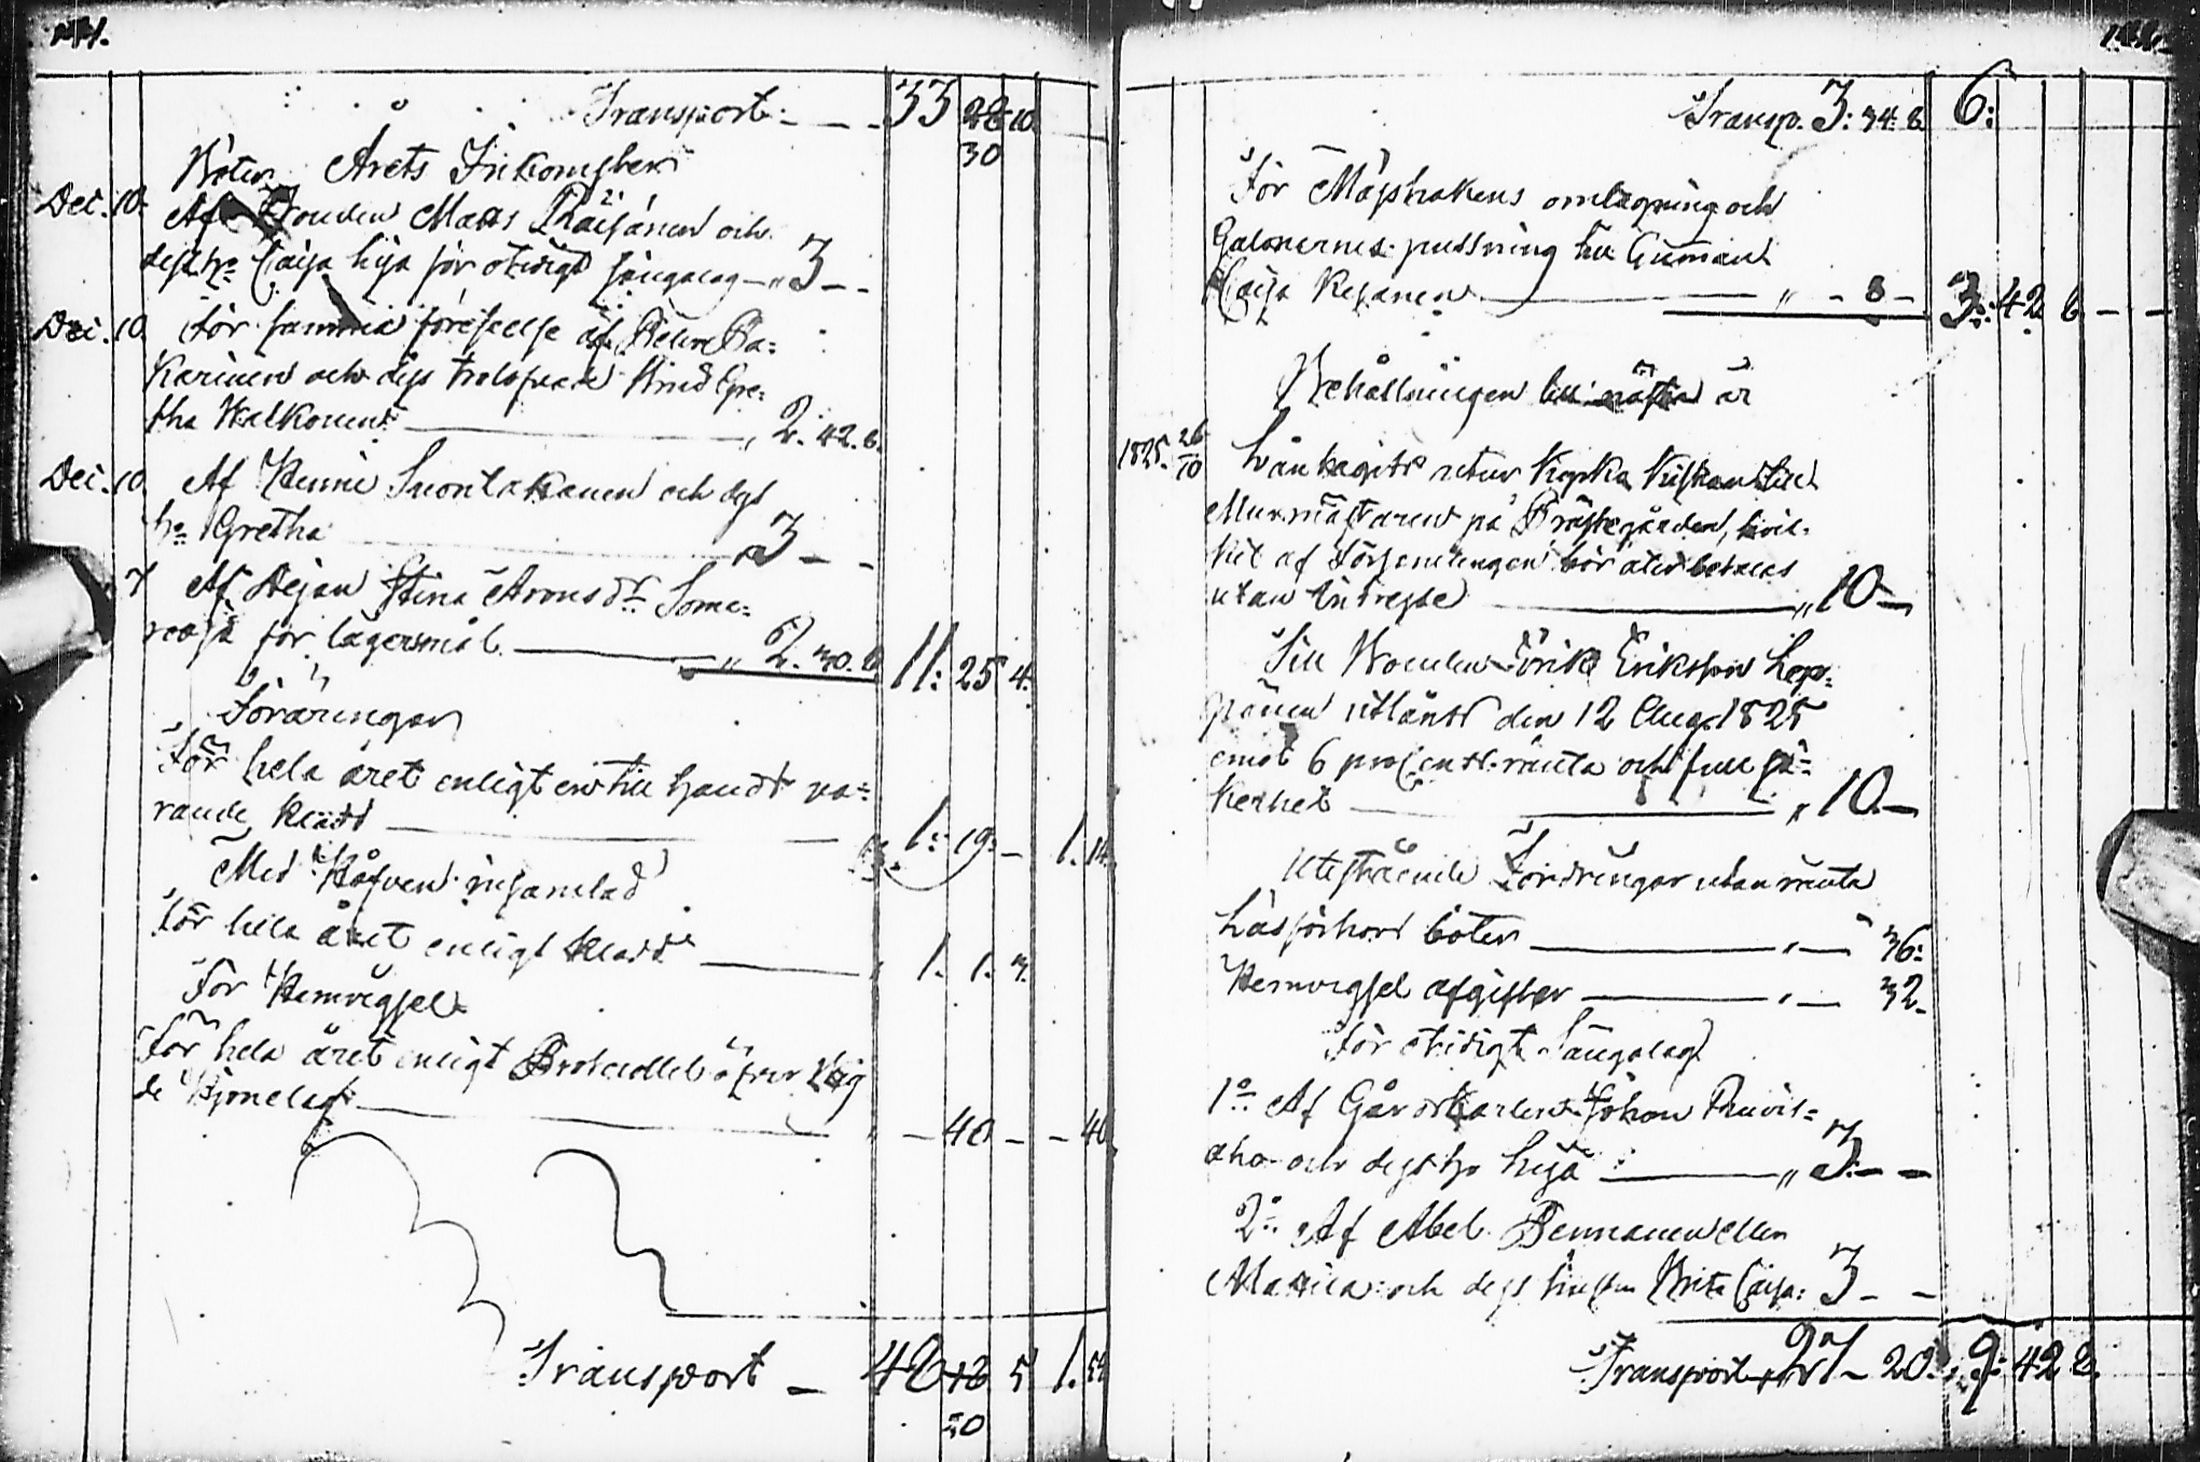 Transport 33 28 10
30
Böter Årets Inkomster
Dec. 10. Af Bonden Matts Räisänen och
dess ho Caisa Lisa för otidigt sängalag „ 3 – –
Dec. 10. För samma förseelse af
karinen och dess trolofvade Gre=
tha Walkonen 2. 42. 8.
Dec. 10. Af Henric Suontakanen och dess
ho Gretha „ 3 – –
Af Pigan Stina Aronsdr
för lägersmål „ 2. 30. 8 11: 25 4.
Föräringar
För hela året enligt en till hands va=
rande kladd 1: 19: – 1. 19.
Med Håfven insamlad
För hela året enligt kladd „ 1. 1. 3.
För Hemvigsel
För hela året enligt Protocollet öfver Vig
de Hjonelag „ – 40 – – 40
Transport – 48 5 1.
20
Transp. 3: 34: 8 6:
För Mässhakens omlagning och
Galonernes putsning till Gumman
Caisa „ – 8 – 3: 42 8 – –
Behållningen till nästa år
1825. 26/10 Lån tagit retur till
Murmästaren på Prästegården, hvil=
ket af Församlingen bör återbetalas
utan Intresse „ 10 –
Till Bonden Erik Eriksson Lep=
pänen utlånt den 12 Aug. 1825
emot 6 procents ränta och full sä=
kerhet „ 10. –
Utestående Fordringar utan ränta
Läsförhörs böter „ – 36:
Hemvigsel afgifter „ – 32.
För otidigt Sängalag
1o Af Gårdskarlen Johan
aho och dess ho Lisa „ 3: – –
2o Af Abel Pennanen eller
Mattila och dess hustru Brita Caisa: 3 – –
Transport 27 – 20. 9: 42 8.